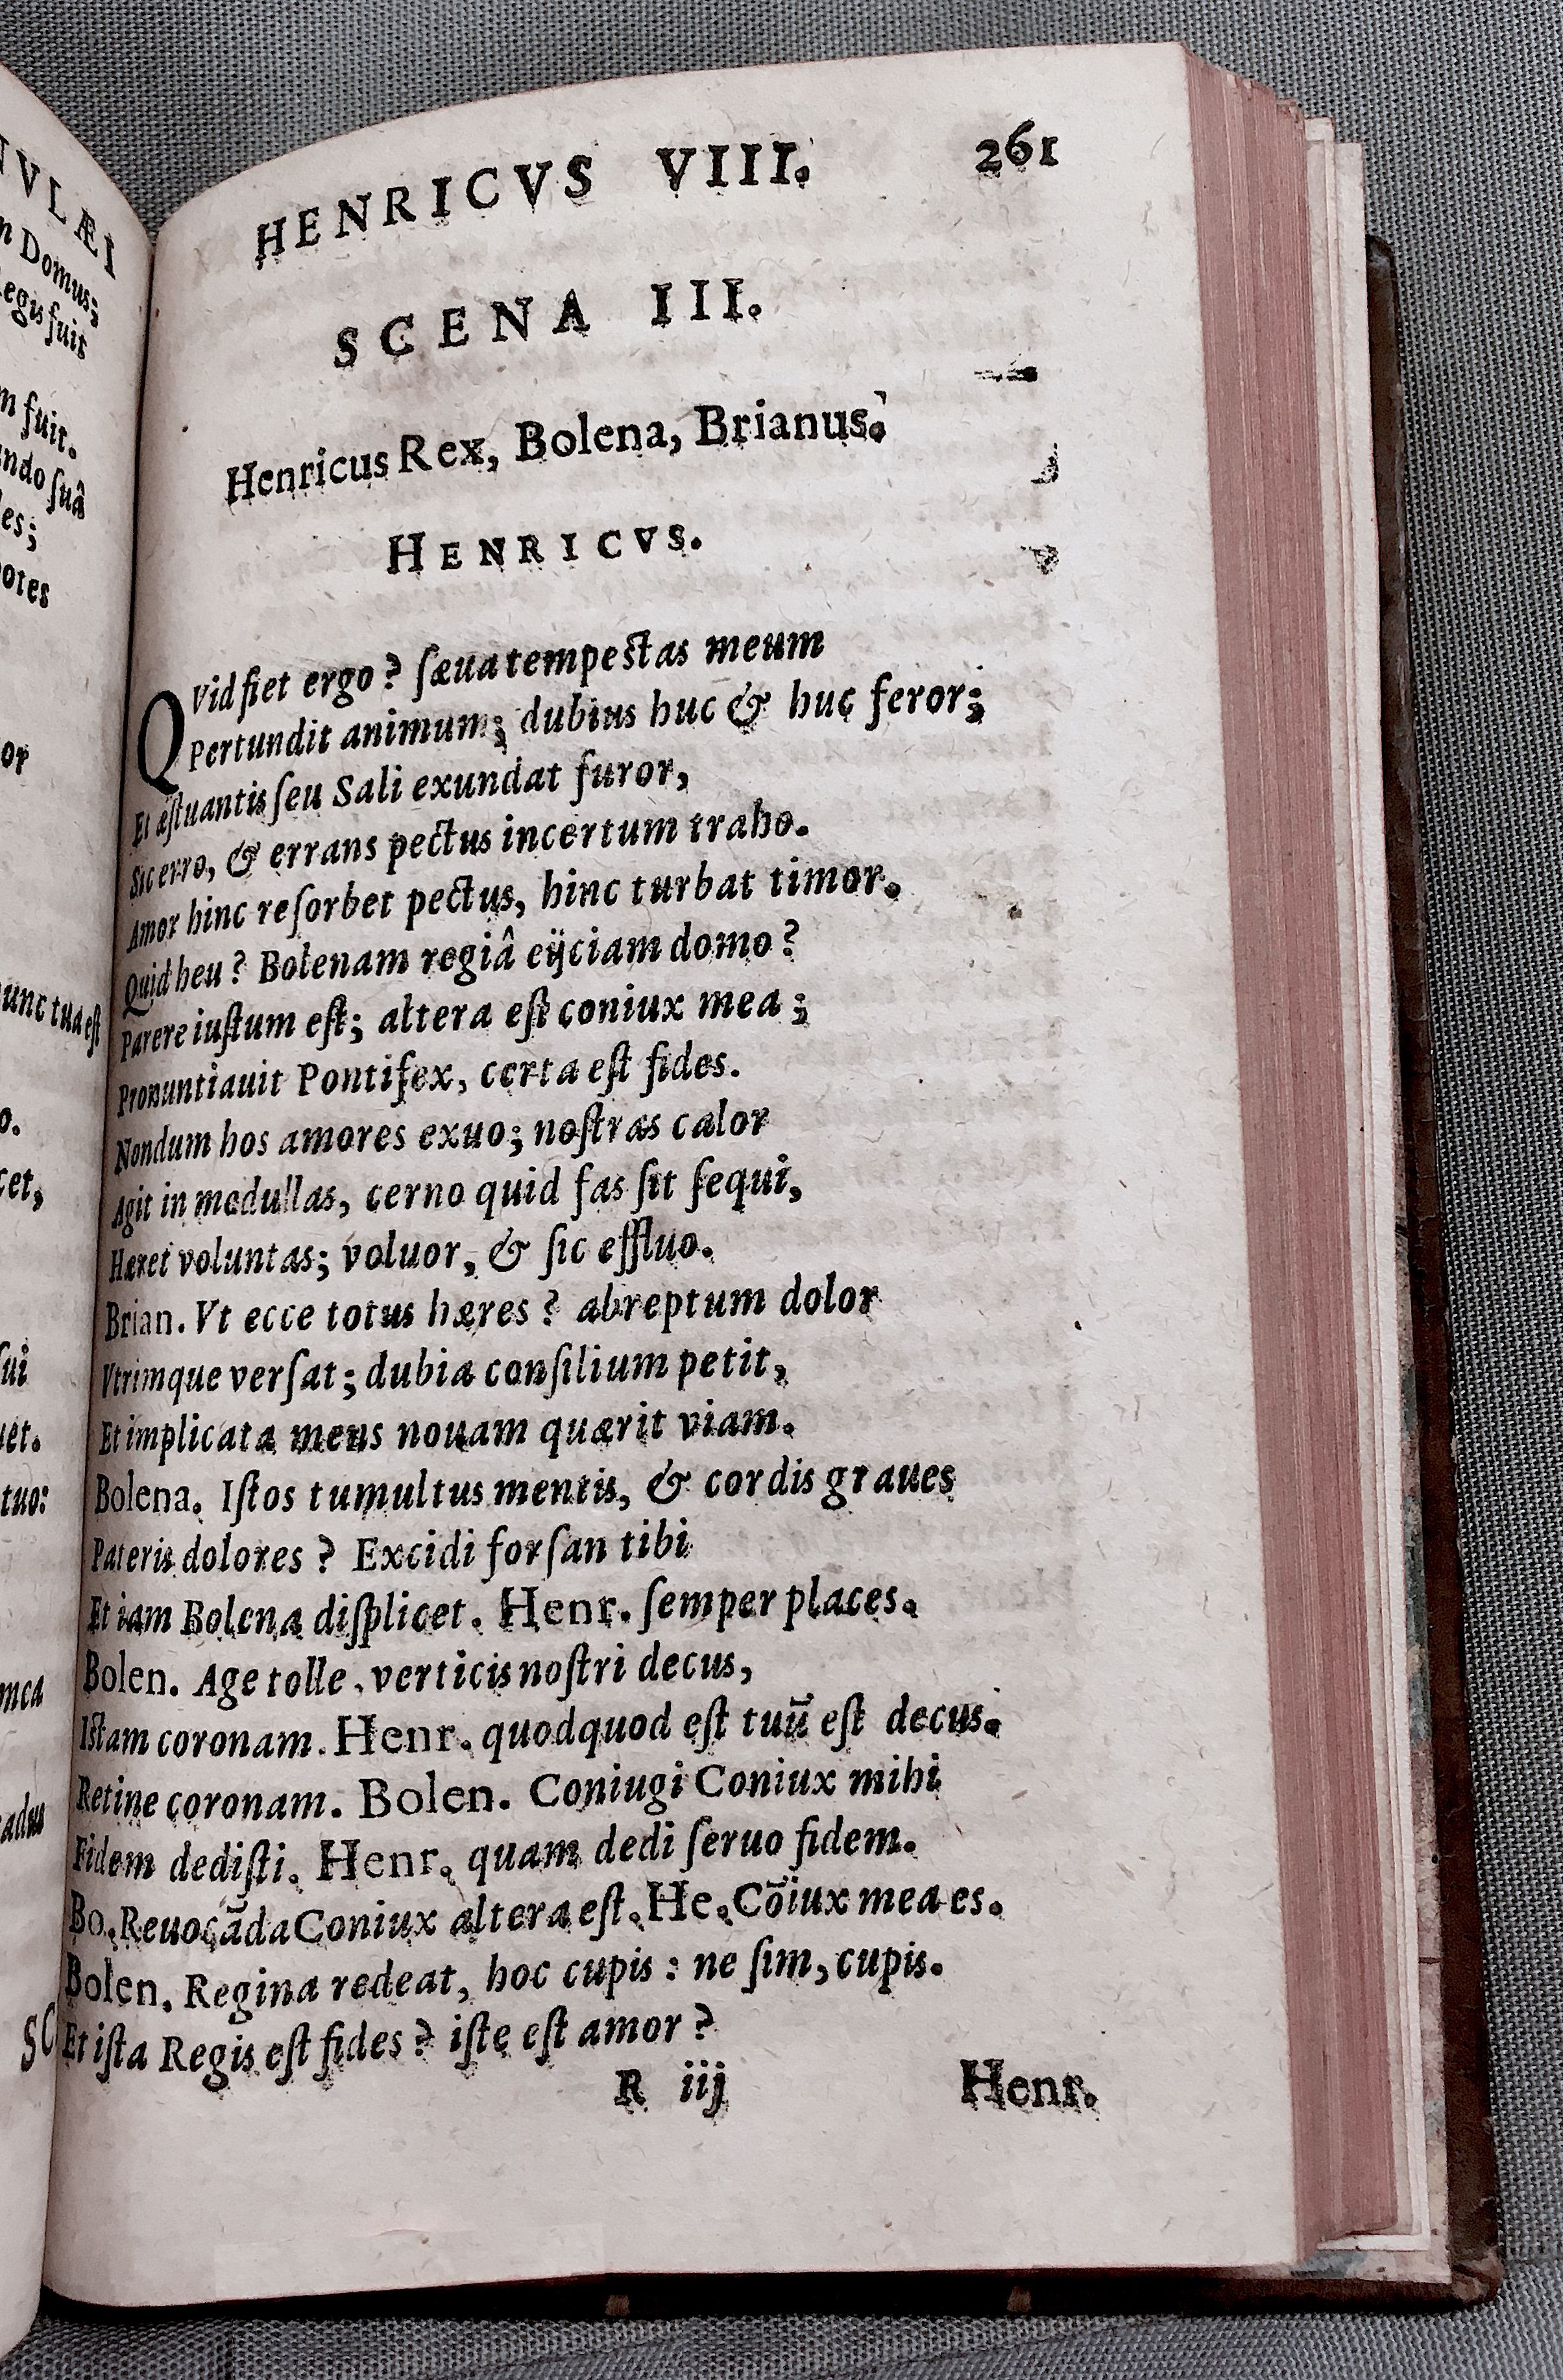 VLÆI
Domus;
egis fuit
fuit.
ndo suâ
es;
otes
or
unc tua est
o.
cet,
sui
uet.
tuo:
mea
adus
SC
HENRICVS VIII. 261
SCENA III.
Henricus Rex, Bolena, Brianus.
HENRICVS.
QVid fiet ergo? sæua tempestas meum
Pertundit animum; dubius huc & huc feror;
Et æstuantis seu Sali exundat furor,
Sic erro, & errans pectus incertum traho.
Amor hinc resorbet pectus, hinc turbat timor.
Quid heu? Bolenam regiâ eijciam domo?
Parere iustum est; altera est coniux mea;
Pronuntiauit Pontifex, certa est fides.
Nondum hos amores exuo; nostras calor
Agit in medullas, cerno quid fas sit sequi,
Hæret voluntas; voluor, & sic effluo.
Brian. Vt ecce totus hæres? abreptum dolor
Vtrimque versat; dubia consilium petit,
Et implicata mens nouam quærit viam.
Bolena. Istos tumultus mentis, & cordis graues
Pateris dolores? Excidi forsan tibi
Et iam Bolena displicet. Henr. semper places.
Bolen. Age tolle, verticis nostri decus,
Istam coronam. Henr. quodquod est tuū est decus.
Retine coronam. Bolen. Coniugi Coniux mihi
Fidem dedisti. Henr. quam dedi seruo fidem.
Bo. Reuocāda Coniux altera est. He. Cōiux mea es.
Bolen. Regina redeat, hoc cupis: ne sim, cupis.
Et ista Regis est fides? iste est amor?
R iij Henr.